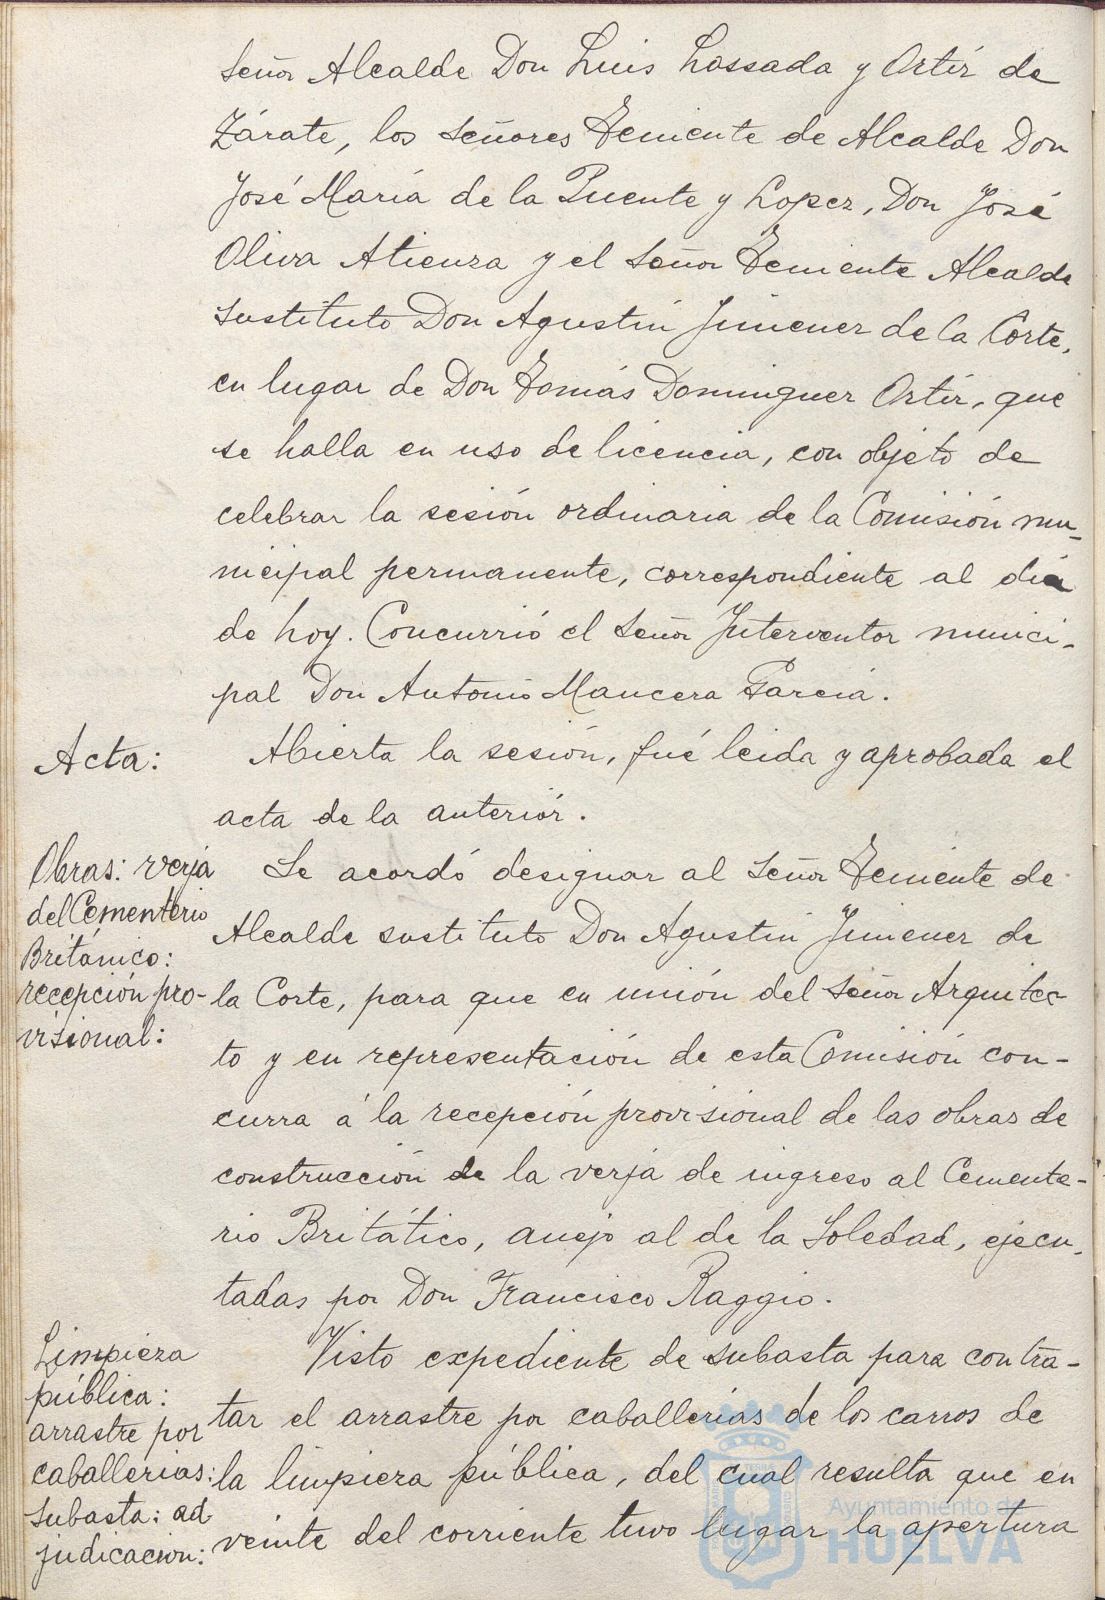 Señor Alcalde Don Luis Lossada y Ortíz de
Zárate, los Señores Teniente de Alcalde Don
José María de la Puente y Lopez, Don José
Oliva Atienza y el Señor Teniente Alcalde
sustituto Don Agustín Jimenez de la Corte,
en lugar de Don Tomás Dominguez Ortíz, que
se halla en uso de licencia, con objeto de
celebrar la sesión ordinaria de la Comisión mu-
nicipal permanente, correspondiente al día
de hoy. Concurrió el Señor Interventor munici-
pal Don Antonio Mancera García.
Acta:
Abierta la sesión, fué leida y aprobada el
acta de la anteriór.
Obras: verja
del Cementerio
Británico:
recepción pro-
visional:
Se acordó designar al Señor Teniente de
Alcalde sustituto Don Agustín Jimenez de
la Corte, para que en unión del Señor Arquitec-
to y en representación de esta Comisión con-
curra á la recepción provisional de las obras de
construcción de la verja de ingreso al Cemente-
rio Británico, anejo al de la Soledad, ejecu-
tadas por Don Francisco Raggio.
Limpieza
pública:
arrastre por
caballerias:
subasta: ad
judicacion:
Visto expediente de subasta para contra-
tar el arrastre por caballerías de los carros de
la limpieza pública, del cual resulta que en
veinte del corriente tuvo lugar la apertura
Ayuntamiento de
HUELVA